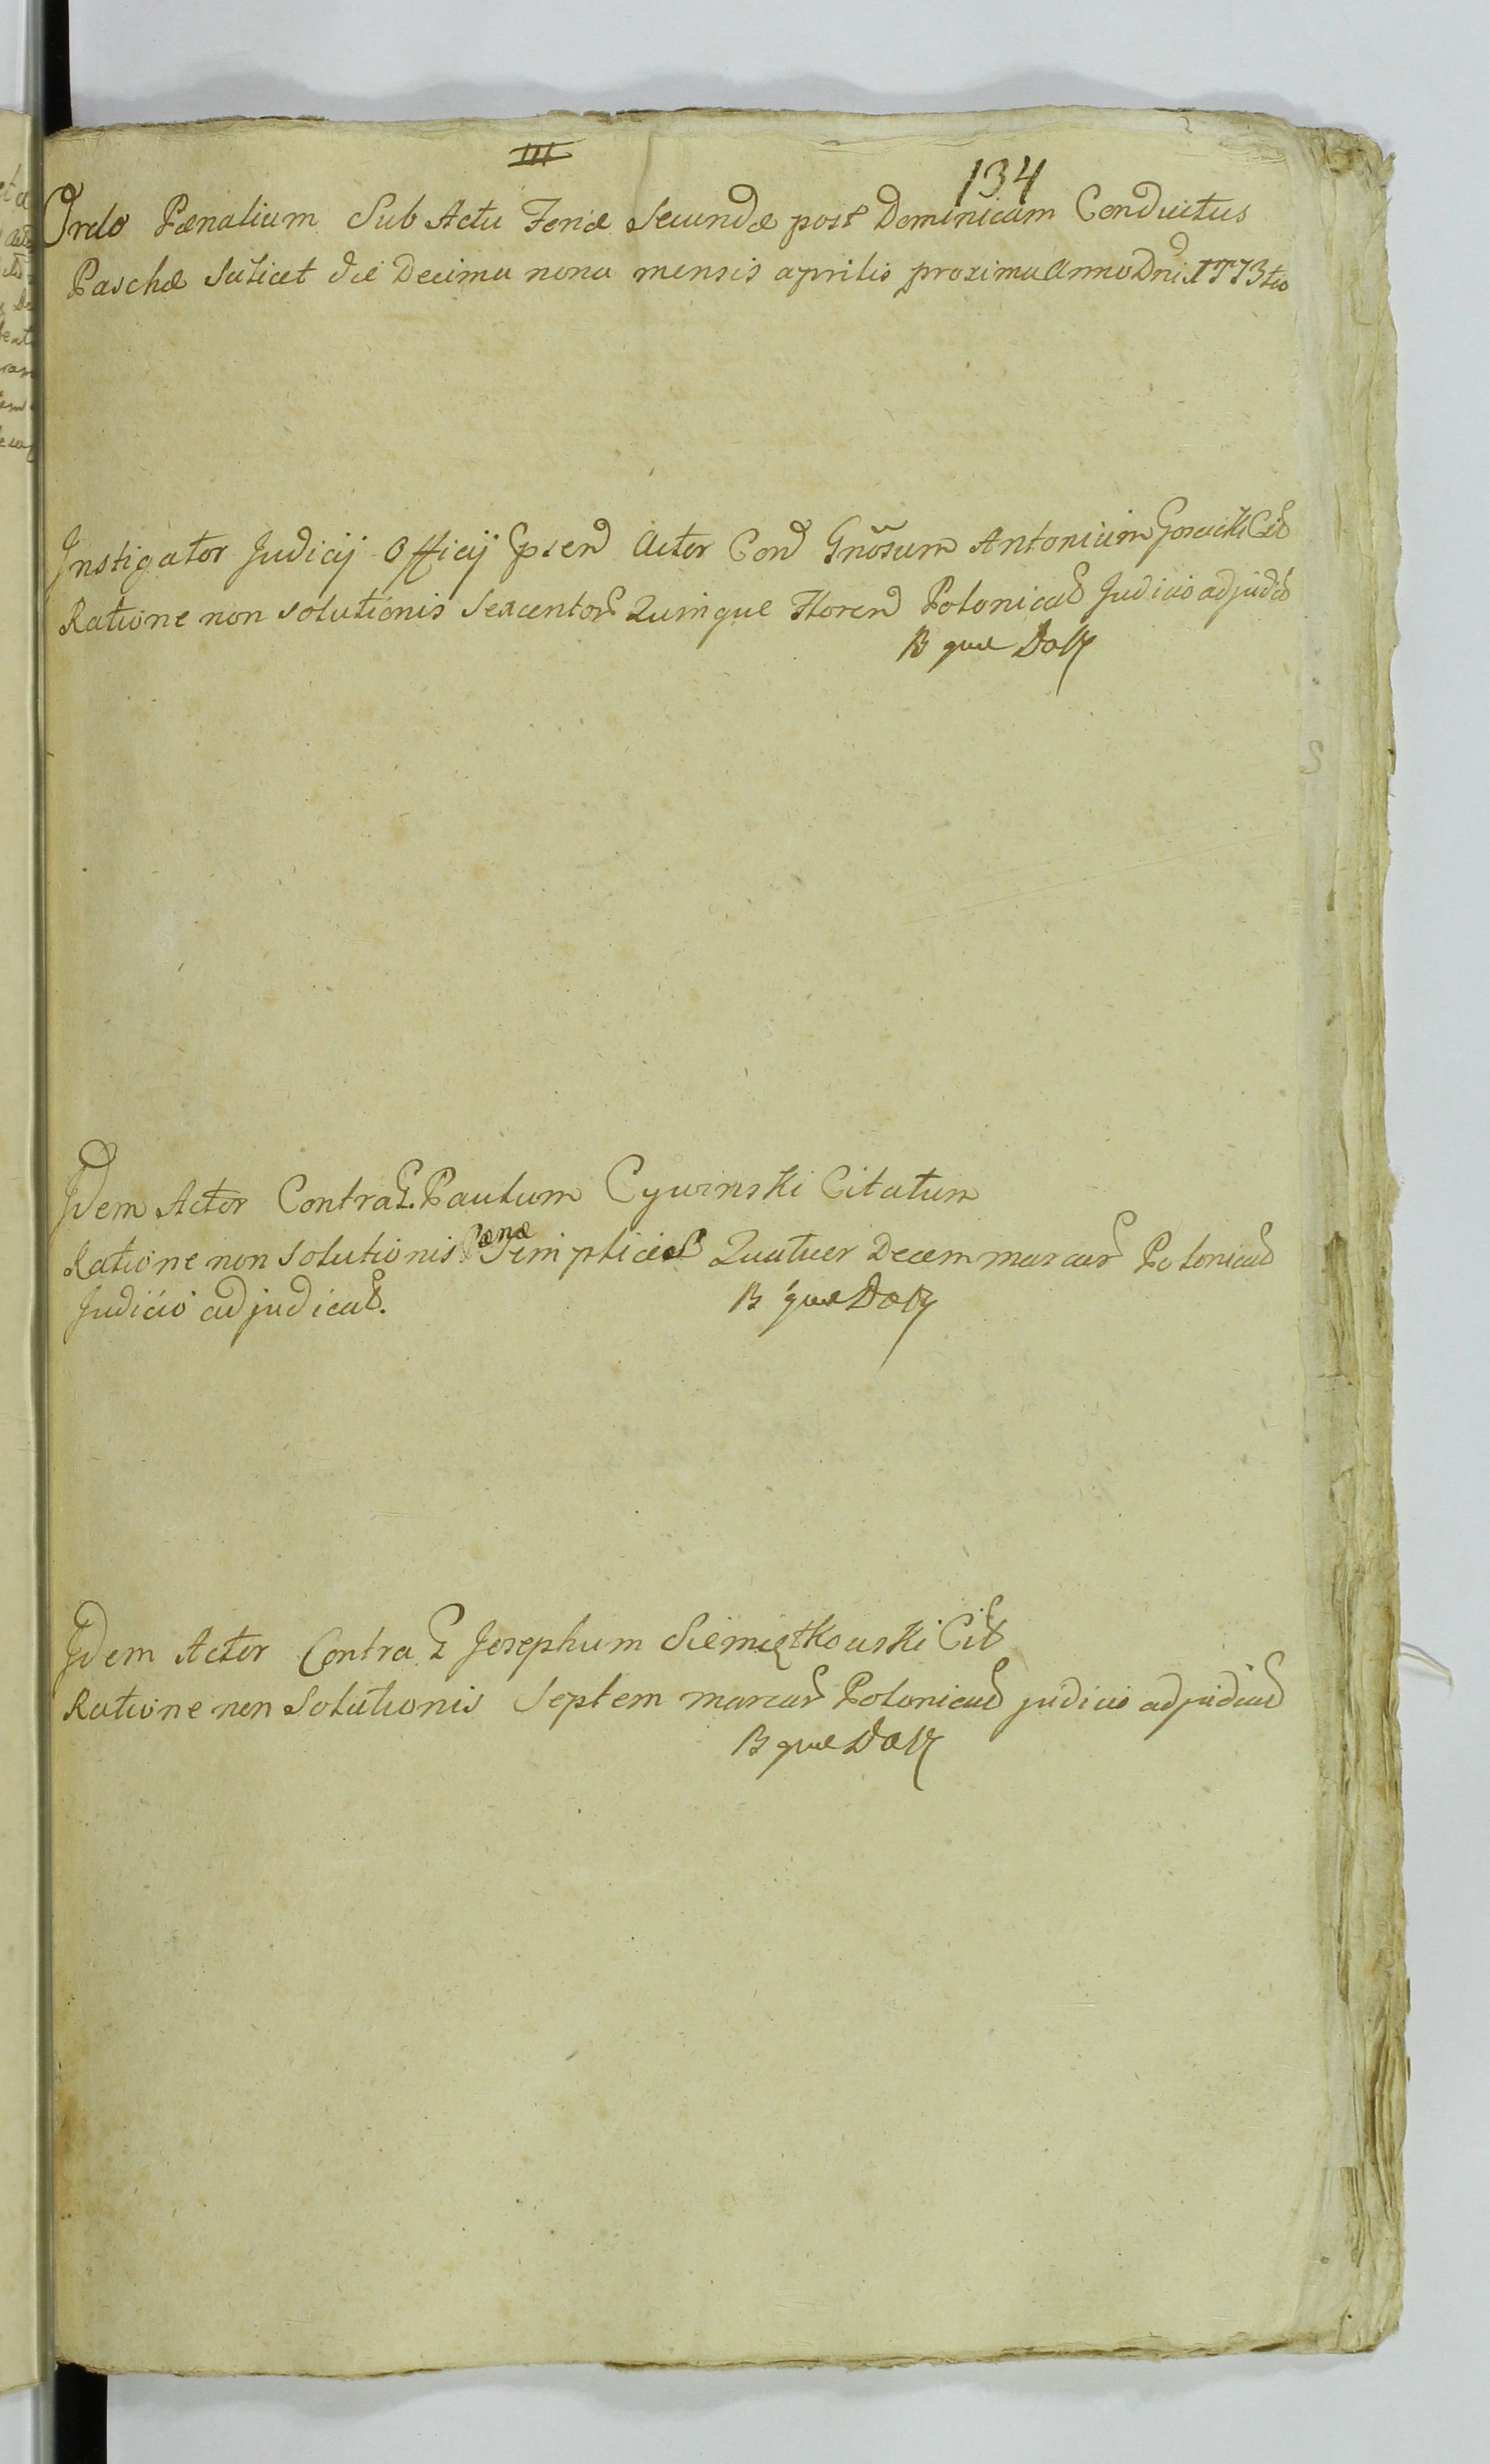 III
134
Ordo Pænalium Sub Actu Feriæ Secundæ post Dominicam Conductus
Paschæ Scilicet die Decima nona mensis aprilis proxima Anno Dni 1773tio
Instigator Judicij Officij psen Actor Con Gnosum Antonium Cit
Ratione non solutionis Sexcentor Quinque floren Polonical Judicio adjudic
Idem Actor Contra G. Paulum Cywinski Citatum
Ratione non solutionis Pænæ Simplicis Quatuer Decem marcar Polonical
Judicio adjudical.
Idem Actor Contra G Josephum Siemiątkowski Cit
Ratione non Solutionis Septem marcar Polonical judicio adjudical